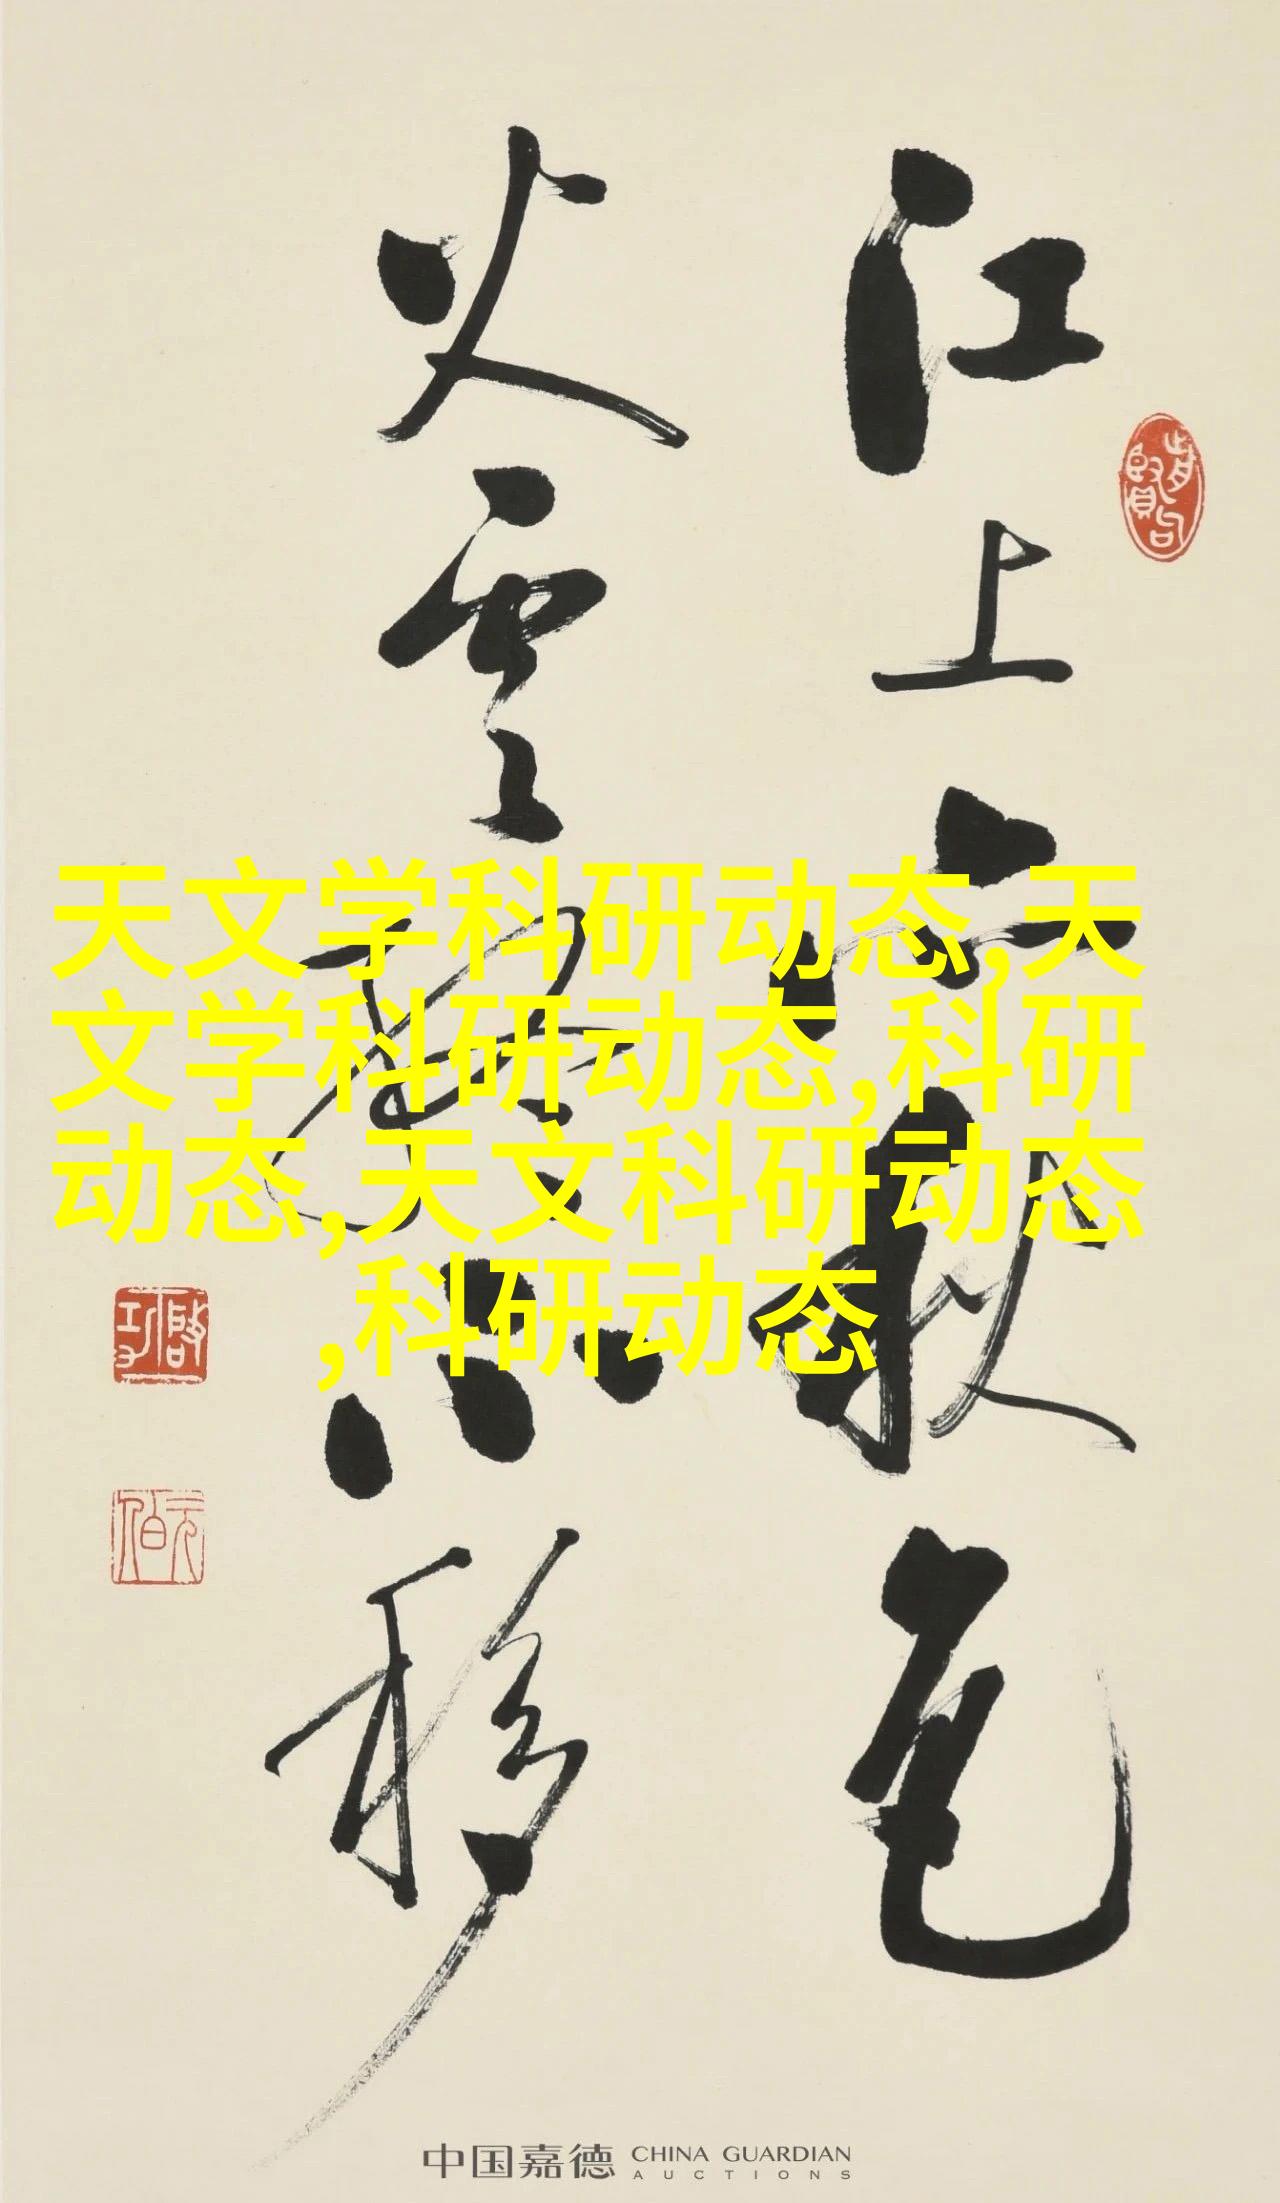 江上亦秋色
火雲終不移
天文学科研动态,天
文学科研动态,科研
动态,天文科研动态
,科研动态
啓功
元白
中国嘉德 CHINA GUARDIAN
AUCTIONS